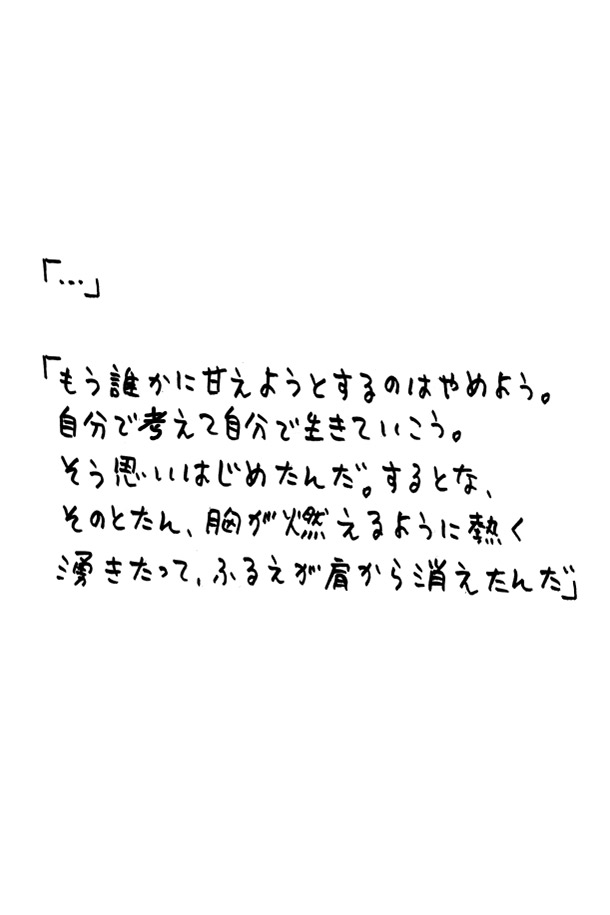 「…」
「もう誰かに甘えようとするのはやめよう。
自分で考えて自分で生きていこう。
そう思いはじめたんだ。するとな、
そのとたん、胸が燃えるように熱く
湧きたって、ふるえが肩から消えたんだ」